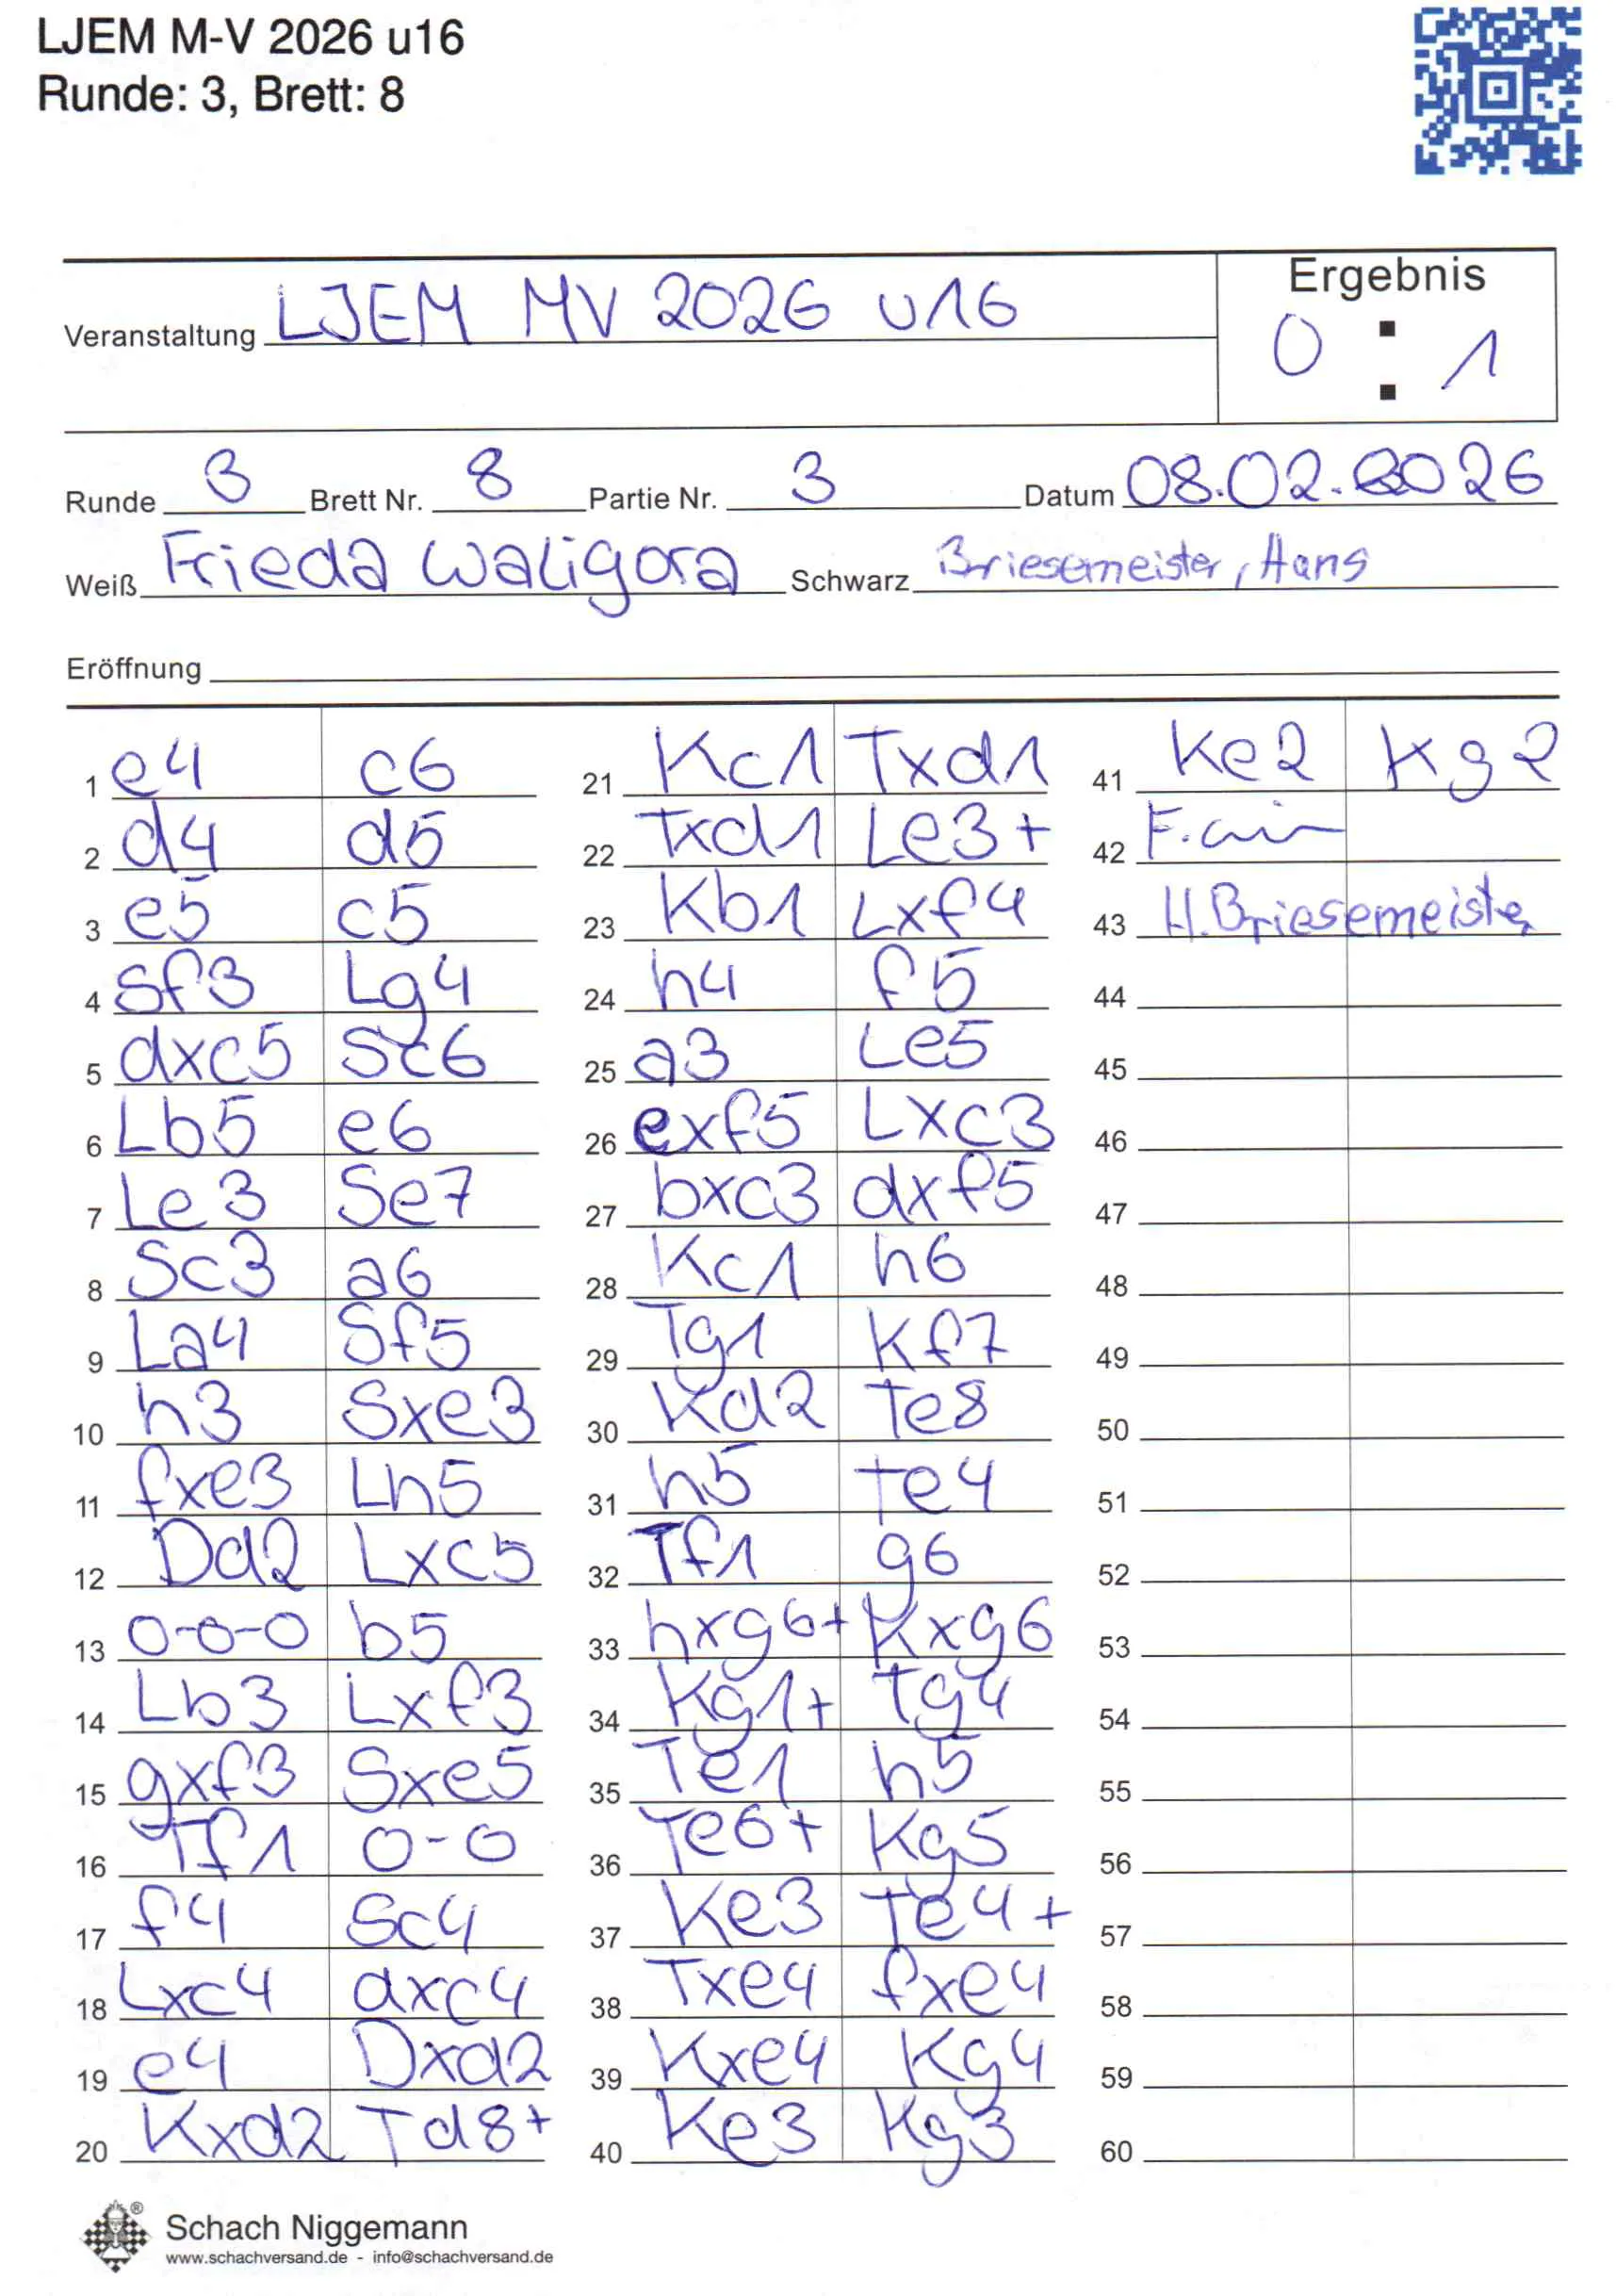 LJEM M-V 2026 u16
Runde: 3, Brett: 8
Ergebnis
Veranstaltung LJEM MV 2026 u16
0 : 1
Runde 3 Brett Nr. 8 Partie Nr. 3 Datum 08.02.2026
Weiß Frieda Waligora Schwarz Briesemeister, Hans
Eröffnung
1 e4 c6
2 d4 d5
3 e5 c5
4 Sf3 Lg4
5 dxc5 Sc6
6 Lb5 e6
7 Le3 Se7
8 Sc3 a6
9 La4 Sf5
10 h3 Sxe3
11 fxe3 Lh5
12 Dd2 Lxc5
13 0-0-0 b5
14 Lb3 Lxf3
15 gxf3 Sxe5
16 Tf1 0-0
17 f4 Sc4
18 Lxc4 dxc4
19 e4 Dxd2
20 Kxd2 Td8+
21 Kc1 Txd1
22 Txd1 Le3+
23 Kb1 Lxf4
24 h4 f5
25 a3 Le5
26 exf5 Lxc3
27 bxc3 dxf5
28 Kc1 h6
29 Tg1 Kf7
30 Kd2 Te8
31 h5 Te4
32 Tf1 g6
33 hxg6+ Kxg6
34 Kg1+ Tg4
35 Te1 h5
36 Te6+ Kg5
37 Ke3 Te4+
38 Txe4 fxe4
39 Kxe4 Kg4
40 Ke3 Kg3
41 Ke2 Kg2
42 F.
43 H.Briesemeister
44
45
46
47
48
49
50
51
52
53
54
55
56
57
58
59
60
Schach Niggemann
www.schachversand.de - info@schachversand.de